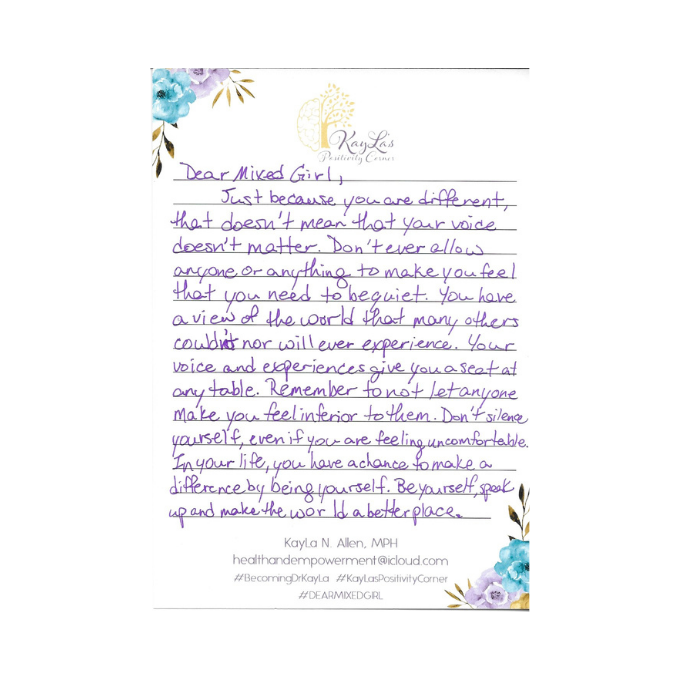 KayLa's
Positivity Corner
Dear Mixed Girl,
Just because you are different,
that doesn't mean that your voice
doesn't matter. Don't ever allow
anyone or anything to make you feel
that you need to be quiet. You have
a view of the world that many others
couldn't nor will ever experience. Your
voice and experiences give you a seat at
any table. Remember to not let anyone
make you feel inferior to them. Don't silence
yourself, even if you are feeling uncomfortable.
In your life, you have a chance to make a
difference by being yourself. Be yourself, speak
up and make the world a better place.
KayLa N. Allen, MPH
healthandempowerment@icloud.com
#BecomingDrKayLa #KayLasPositivityCorner
#DEARMIXEDGIRL